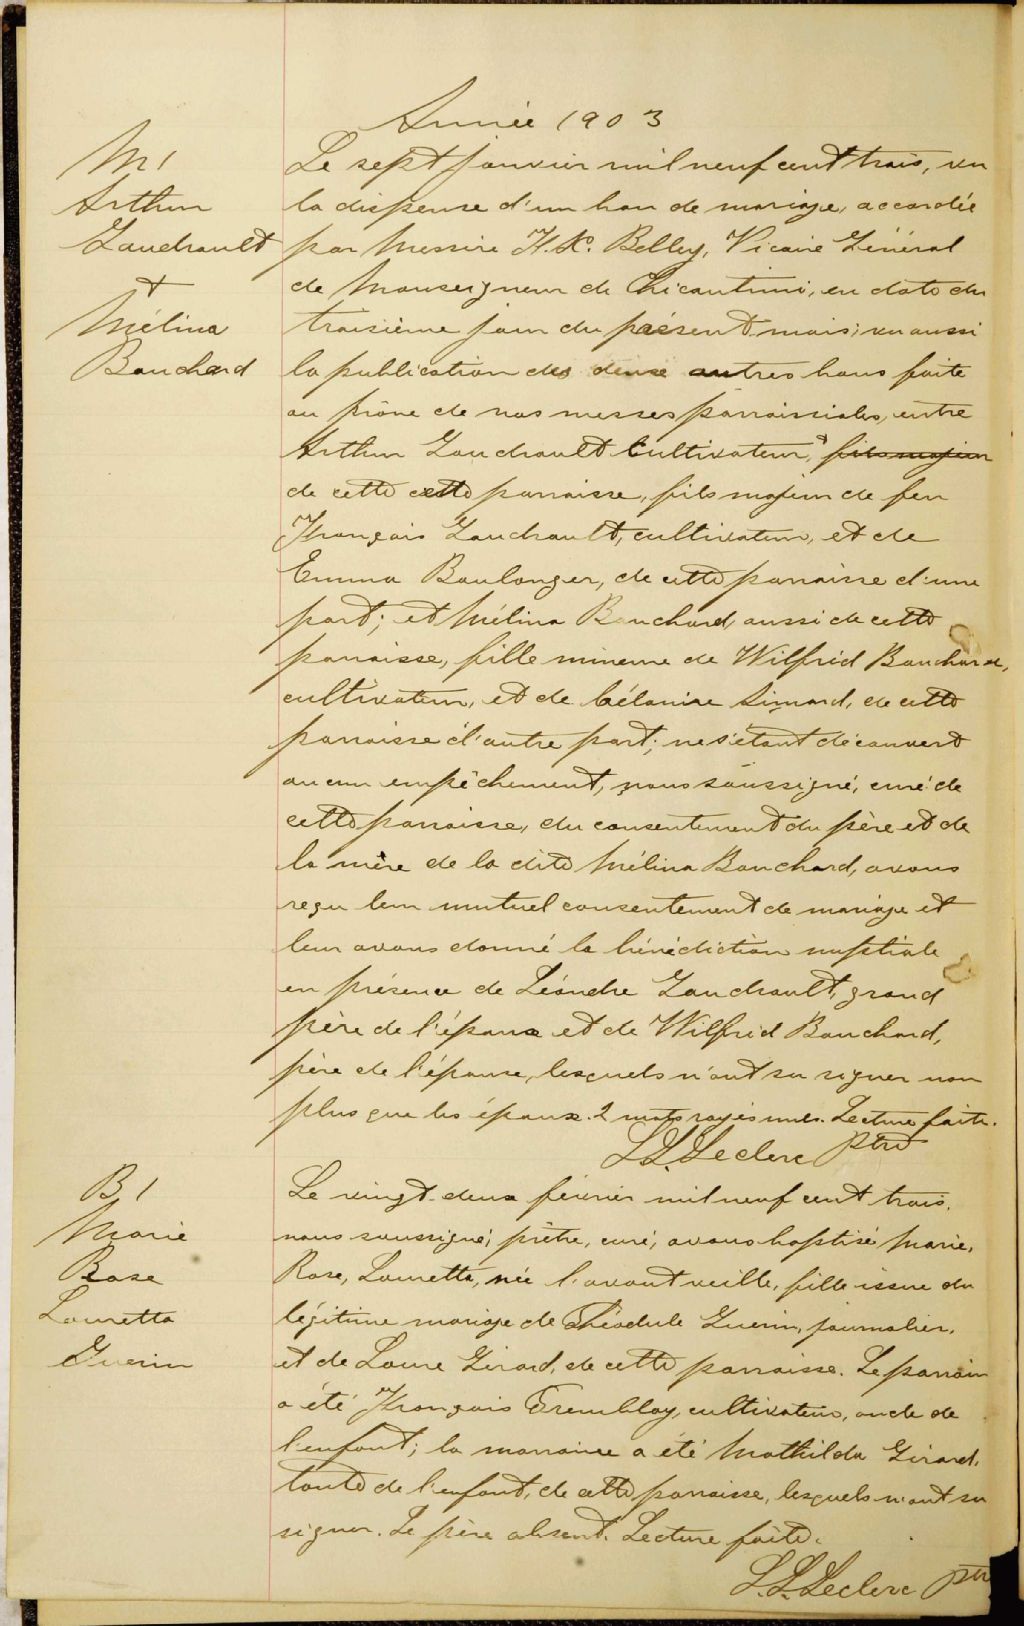 Année 1903
M 1
Arthur
Gaudrault
+
Mélina
Bouchard
Le sept janvier mil neuf cent trois, vu
la dispense d'un ban de mariage, accordée
par Messire F. X. Belley, Vicaire Général
de Monseigneur de Chicoutimi, en date du
troisième jour du présent mois; vu aussi
la publication des deux autres bans faite
au prône de nos messes paroissiales, entre
Arthur Gaudrault Cultivateur, fils majeur
de cette cette paroisse, fils majeur de feu
François Gaudrault, cultivateur, et de
Emma Boulanger, de cette paroisse d'une
part; et Mélina Bouchard, aussi de cette
paroisse, fille mineure de Wilfrid Bouchard,
cultivateur, et de Célanire Simard, de cette
paroisse d'autre part; ne s'étant découvert
aucun empêchement, nous soussigné, curé de
cette paroisse, du consentement du père et de
la mère de la dite Mélina Bouchard, avons
reçu leur mutuel consentement de mariage et
leur avons donné la bénédiction nuptiale
en présence de Léandre Gaudrault, grand
père de l'époux et de Wilfrid Bouchard,
père de l'épouse, lesquels n'ont su signer non
plus que les époux. 2 mots rayés nuls. Lecture faite.
L. L. Leclerc Ptre
B 1
Marie
Rose
Lauretta
Guerin
Le vingt-deux février mil neuf cent trois,
nous soussigné, prêtre, curé, avons baptisé Marie,
Rose, Lauretta, née l'avant veille, fille issue du
légitime mariage de Théodule Guerin, journalier,
et de Laure Girard, de cette paroisse. Le parrain
a été François Tremblay, cultivateur, oncle de
l'enfant; la marraine a été Mathilda Girard,
tante de l'enfant, de cette paroisse, lesquels n'ont su
signer. Le père absent. Lecture faite.
L. L. Leclerc ptre